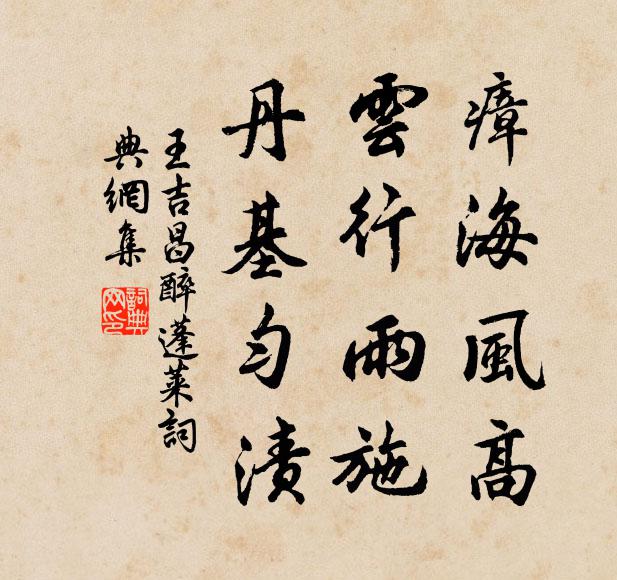 瘴海風高
雲行雨施
丹基勻漬
王吉昌醉蓬萊詞
典網集
詞典网印